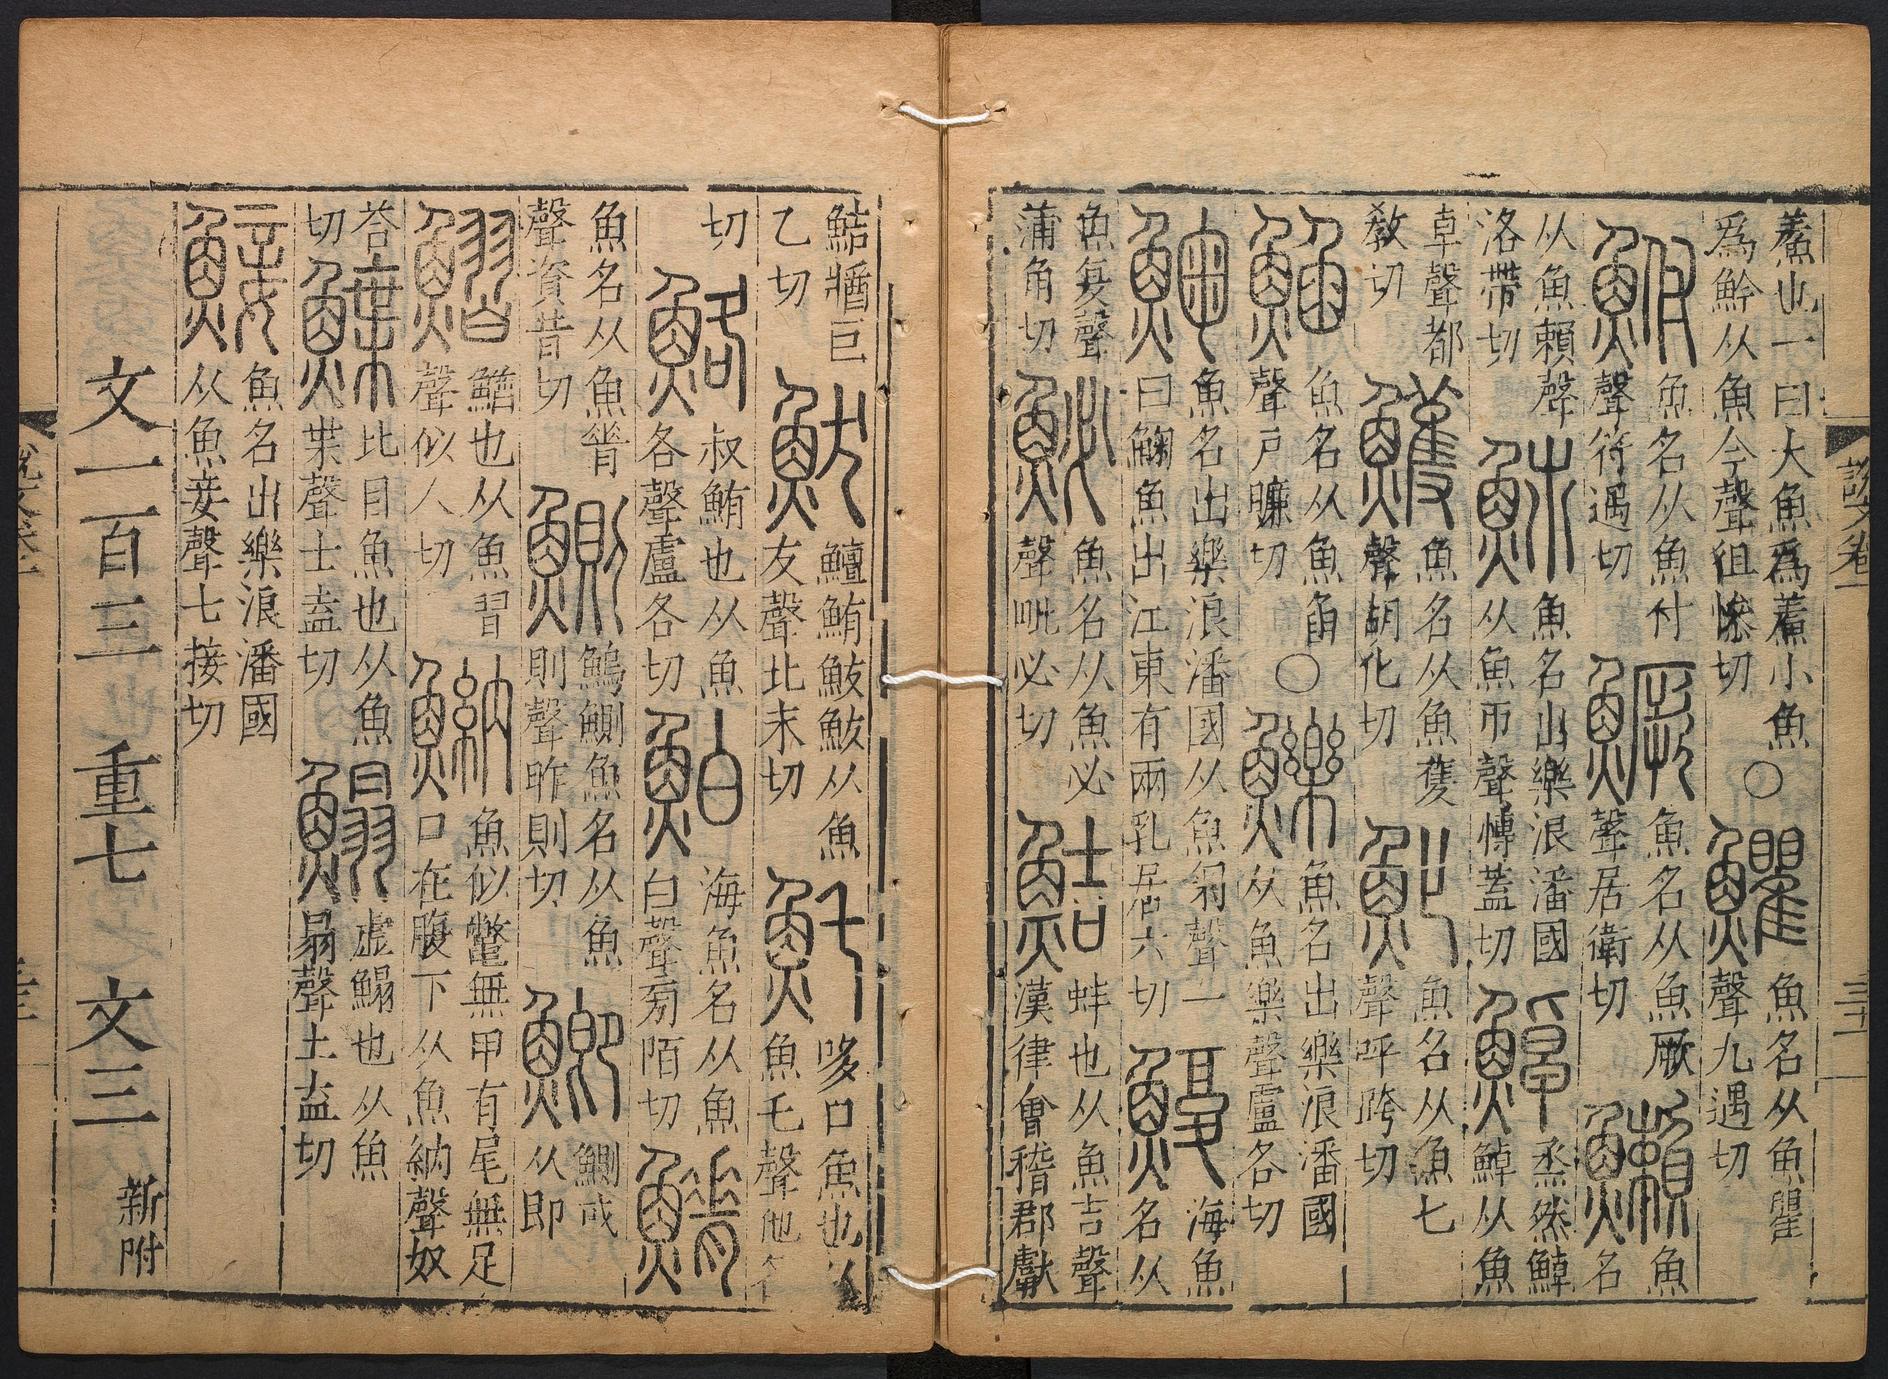 說文卷十一
鮺也一曰大魚爲鮺小魚爲魿从魚今聲徂慘切 ○ 魚名从魚瞿聲九遇切
鮒 魚名从魚付聲符遇切 鱖 魚名从魚厥聲居衛切 魚名
从魚賴聲洛帶切 䰽 魚名出樂浪潘國从魚巿聲博蓋切 烝然 从魚
卓聲都教切 鱯 魚名从魚蒦聲胡化切 魤 魚名从魚七聲呼跨切
䱤 魚名从魚臽聲戶切 ○ 鱳 魚名出樂浪潘國从魚樂聲盧各切
䱡 魚名出樂浪潘國从魚匊聲一曰魚出江東有兩乳居六切 鰒 海魚名从
魚复聲蒲角切 鮅 魚名从魚必聲毗必切 鮚 蚌也从魚吉聲漢律會稽郡獻
鮚醬巨乙切 鮁 鱣鮪鮁鮁从魚友聲北末切 魠 哆口魚也从魚乇聲他各
切 鮥 叔鮪也从魚各聲盧各切 鮊 海魚名从魚白聲陌切
魚名从魚脊聲資昔切 鰂 鰞鰂魚名从魚則聲昨則切 鯽 鰂或从即
鰼 鰌也从魚習聲似入切 魶 魚似鼈無甲有尾無足口在腹下从魚納聲奴
荅切 鰈 比目魚也从魚枼聲土盍切 鰨 虛鰨也从魚𦐇聲土盍切
鯜 魚名出樂浪潘國从魚妾聲七接切
文一百三 重七 文三 新附